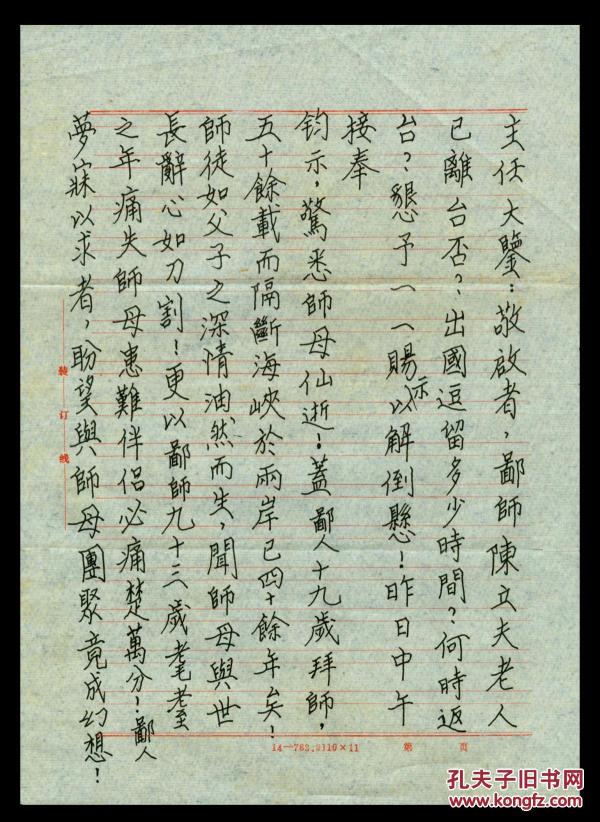 主任大鑒：敬啟者，鄙師陳立夫老人
已離台否？出國逗留多少時間？何時返
台？懇予一一賜示以解倒懸！昨日中午
接奉
鈞示，驚悉師母仙逝！蓋鄙人十九歲拜師，
五十餘載而隔斷海峽於兩岸已四十餘年矣！
師徒如父子之深情油然而生，聞師母與世
長辭心如刀割！更以鄙師九十三歲耄耋
之年痛失師母患難伴侶必痛楚萬分！鄙人
夢寐以求者，盼望與師母團聚竟成幻想！
裝订线
14—783.2)19×11 第 页
孔夫子旧书网
www.kongfz.com